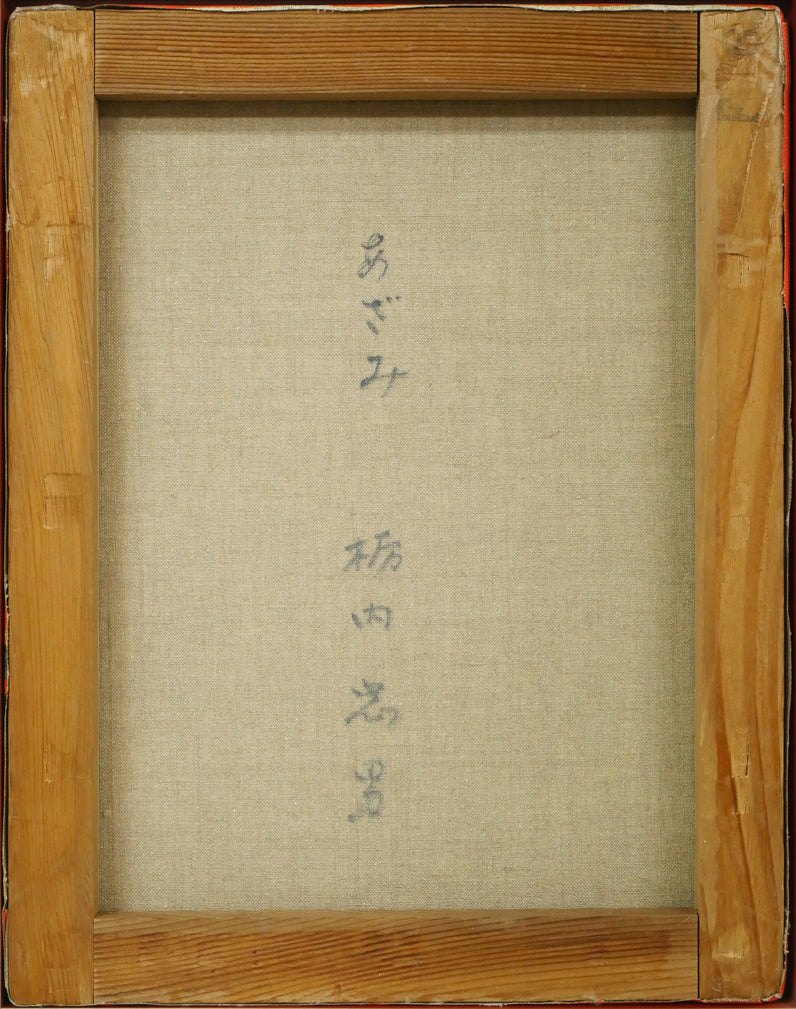 あざみ
栃内忠男